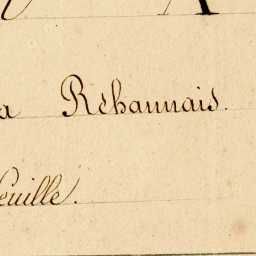 a Réhaunais.
euille.